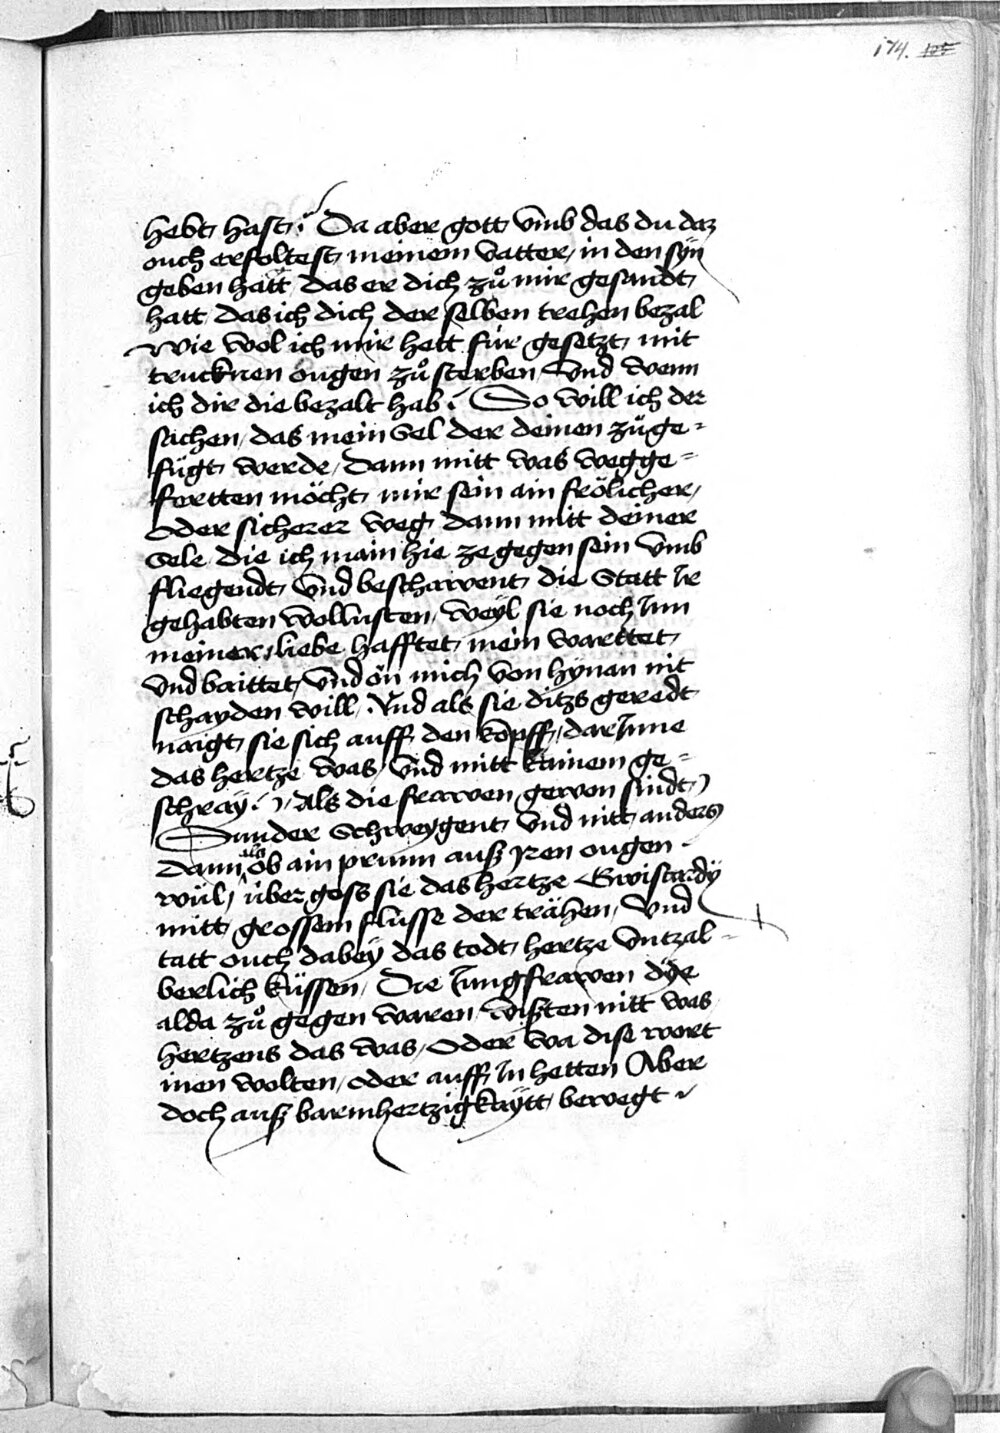 174. 125
hebt hast. Da aber gott vmb das du daz
ouch erfoltest meinem vatter, in den syn
geben hätt das er dich zů mir gesandt
hatt, das ich dich der selben trehen bezal
wie wol ich mir hett für gesetzt mit
trucknen ougen zů sterben Vnd wenn
ich dir die bezalt hab. So will ich der
sachen, das mein Sel der deinen zůge=
fügt werde, Dann mitt was wegge=
fertten möcht mir sein ain frölicher,
oder sicherer weg dann mitt deiner
Sele die ich main hie ze gegen sein vmb
fliegendt vnd beschawent die Statt Ir
gehabten wollusten, weyl sie noch Inn
meiner liebe hafftet, mein warttet,
vnd baittet, vnd ön mich von hynan nit
schayden will. Vnd als sie ditzs geredt
naigt sie sich auff den kopff, dar Inne
das hertze was, vnd mitt kainem ge=
schray. Als die frawen gewon sindt,
Sunder Schweygent vnd nitt anders
Dann als ob ain prunn auß Jren ougen
wül, über goss sie das hertze Gwiscardÿ
mitt grossem flusse der trähen, vnd
tatt ouch dabeÿ das todt hertze vntzal=
berlich küssen, Die Jungfrawen dÿe
alda zů gegen waren, wißten nitt was
hertzens das was, Oder wa dise wort
inen wolten, oder auff In hetten Aber
doch auß barmhertzigkaÿtt bewegt